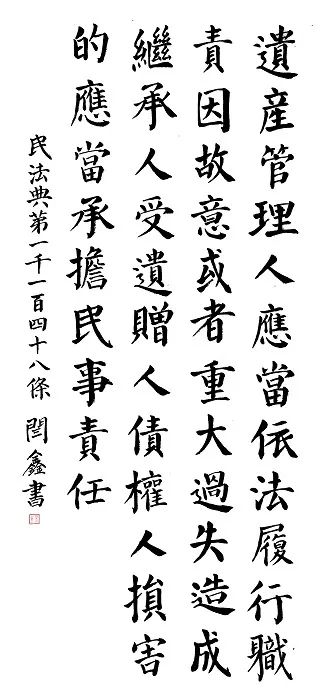 遺產管理人應當依法履行職
責因故意或者重大過失造成
繼承人受遺贈人債權人損害
的應當承擔民事責任
民法典第一千一百四十八條 閆鑫書